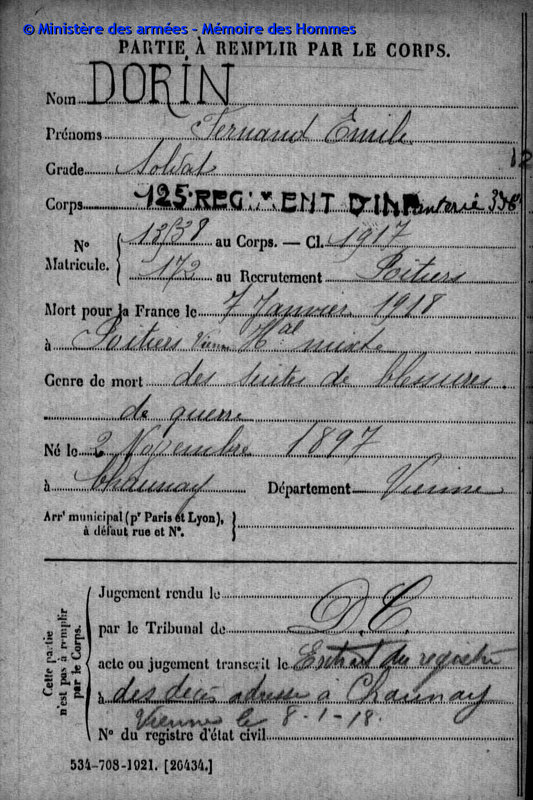 © Ministère des armées - Mémoire des Hommes
PARTIE À REMPLIR PAR LE CORPS.
Nom DORIN
Prénoms Fernand Emile
Grade Soldat
12
Corps 125 REGIMENT D'INFanterie
N° Matricule. { 13738 au Corps. — Cl. 1917
172 au Recrutement Poitiers
Mort pour la France le 7 Janvier 1918
à Poitiers Vienne Hal mixte
Genre de mort des suites de blessures
de guerre
Né le 2 Novembre 1897
à Chaunay Département Vienne
Arrt municipal (pr Paris et Lyon), à défaut rue et N°. }
Cette partie n'est pas à remplir par le Corps.
Jugement rendu le
par le Tribunal de D.C.
acte ou jugement transcrit le Extrait du registre
à des decès adresse a Chaunay
Vienne le 8-1-18.
N° du registre d'état civil
534-708-1921. [26434.]